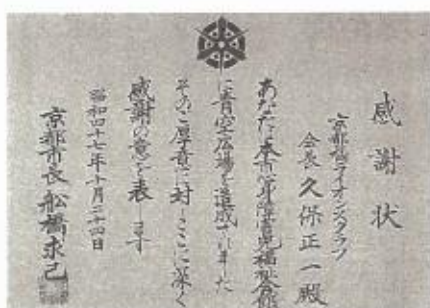 感謝状
京都
ライオンズクラブ
会長 久保正一殿
あなたは本市心身障害児福祉会館
に青空広場を造成されました
そのご厚意に対しここに深く
感謝の意を表します
昭和四十七年十月二十四日
京都市長 舩橋求己